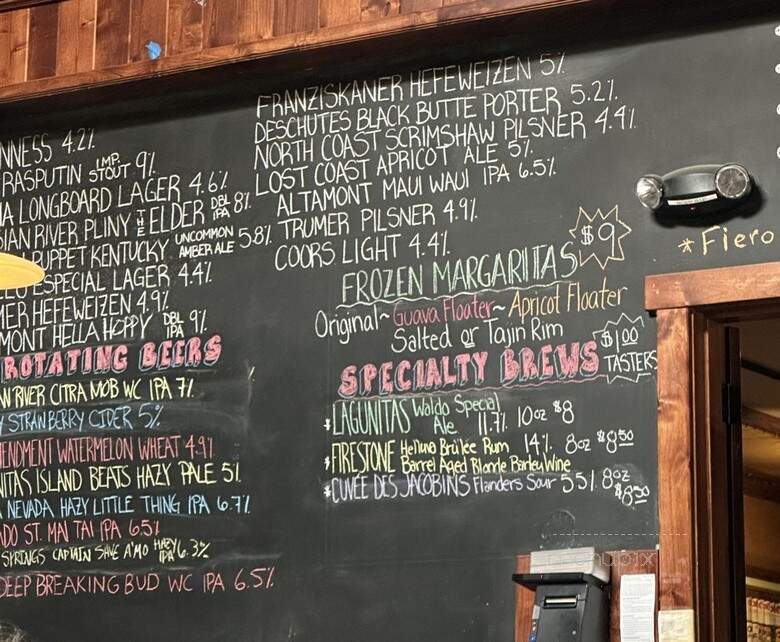 NNESS 4.2%
RASPUTIN IMP. STOUT 9%
A LONGBOARD LAGER 4.6%
IAN RIVER PLINY THE ELDER DBL IPA 8%
PUPPET KENTUCKY UNCOMMON AMBER ALE 5.8%
ESPECIAL LAGER 4.4%
MER HEFEWEIZEN 4.9%
MONT HELLA HOPPY DBL IPA 9%
ROTATING BEERS
N RIVER CITRA MOB WC IPA 7%
Y STRAWBERRY CIDER 5%
ENDMENT WATERMELON WHEAT 4.9%
ITAS ISLAND BEATS HAZY PALE 5%
NEVADA HAZY LITTLE THING IPA 6.7%
DO ST. MAI TAI IPA 6.5%
SPRINGS CAPTAIN SAVE A'MO HAZY IPA 6.3%
DEEP BREAKING BUD WC IPA 6.5%
FRANZISKANER HEFEWEIZEN 5%
DESCHUTES BLACK BUTTE PORTER 5.2%
NORTH COAST SCRIMSHAW PILSNER 4.4%
LOST COAST APRICOT ALE 5%
ALTAMONT MAUI WAUI IPA 6.5%
TRUMER PILSNER 4.9%
COORS LIGHT 4.4%
$9
FROZEN MARGARITAS
Original~ Guava Floater~ Apricot Floater
Salted or Tajin Rim
SPECIALTY BREWS
$1.00
TASTERS
LAGUNITAS Waldo Special Ale 11.7% 10oz $8
FIRESTONE Helluva Brûlée Rum Barrel Aged Blonde Barley Wine 14% 8oz $8.50
CUVÉE DES JACOBINS Flanders Sour 5.5% 8oz $8.50
*Fiero